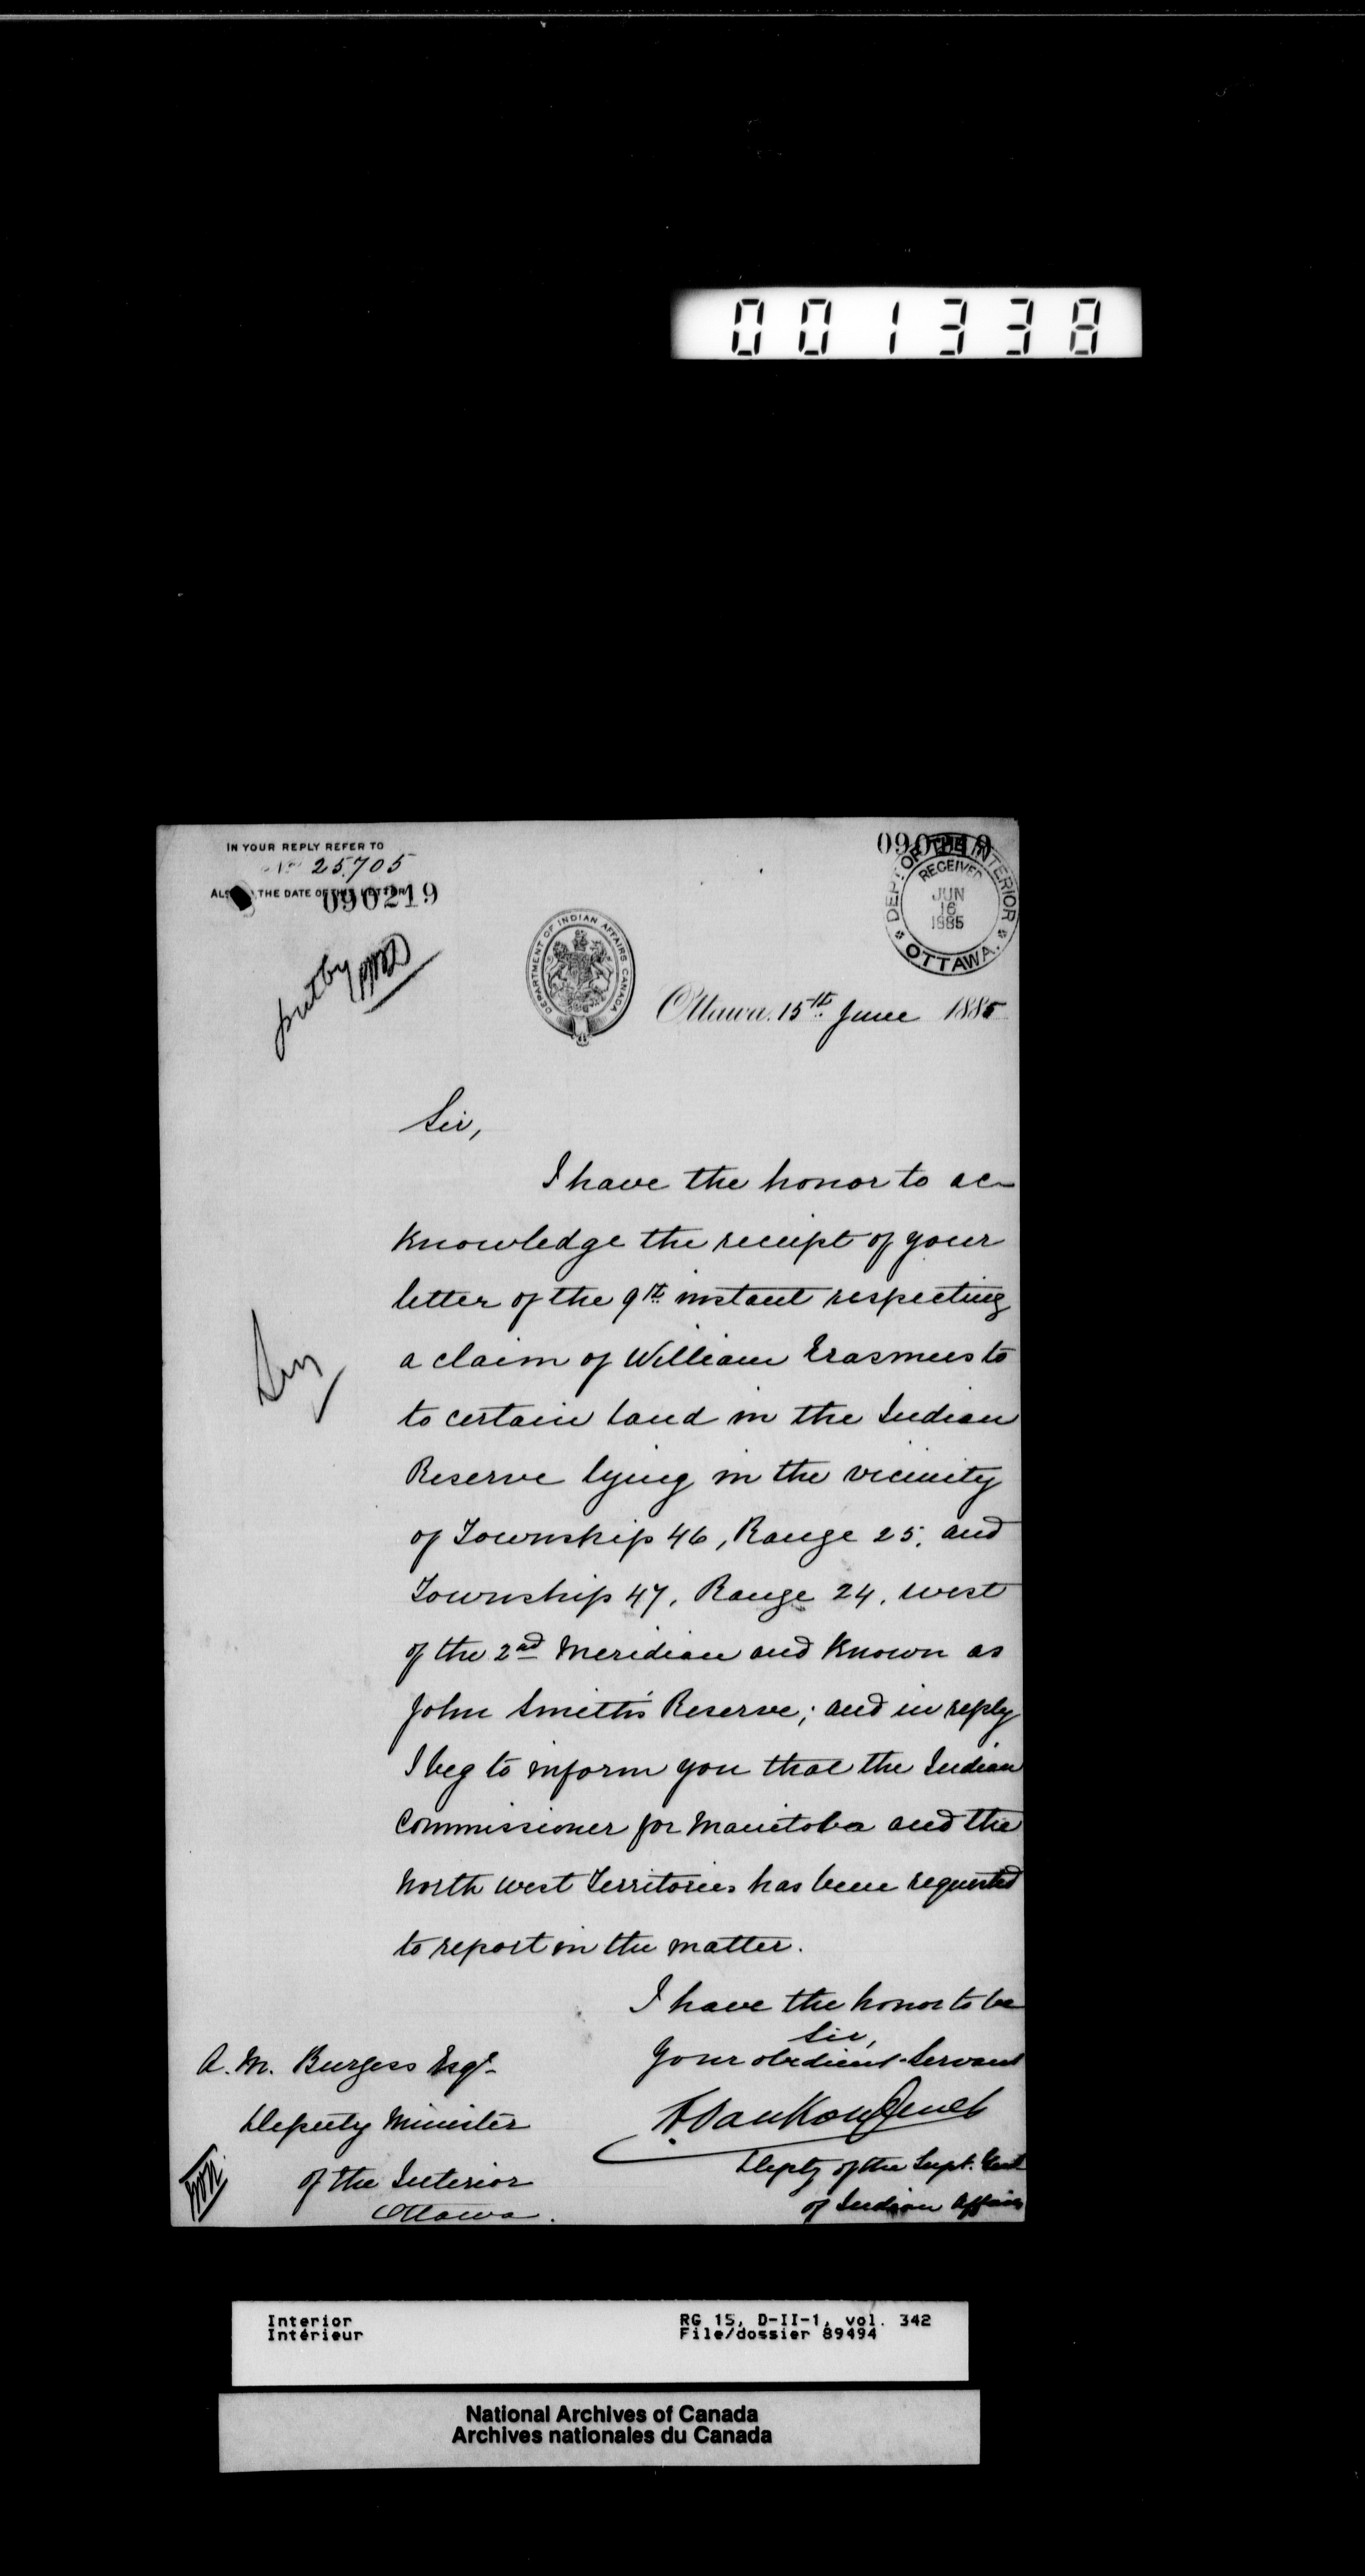 001338
IN YOUR REPLY REFER TO
No 25705
ALSO THE DATE OF THIS LETTER
090219
090219
DEPT. OF THE INTERIOR
RECEIVED
JUN
16
1885
OTTAWA.
put by
DEPARTMENT OF INDIAN AFFAIRS CANADA
Ottawa. 15th June 1885
Sir,
I have the honor to ac-
knowledge the receipt of your
letter of the 9th instant respecting
a claim of William Erasmus to
to certain land in the Indian
Reserve lying in the vicinity
of Township 46, Range 25, and
Township 47, Range 24, west
of the 2nd Meridian and known as
John Smith's Reserve; and in reply
I beg to inform you that the Indian
Commissioner for Manitoba and the
North West Territories has been requested
to report on the matter.
I have the honor to be
Sir,
Your obedient Servant
L VanKoughnet
Depty of the Supt. Genl
of Indian Affairs
A. M. Burgess Esqr.
Deputy Minister
of the Interior
Ottawa.
Interior
Intérieur
RG 15, D-II-1, vol. 342
File/dossier 89494
National Archives of Canada
Archives nationales du Canada